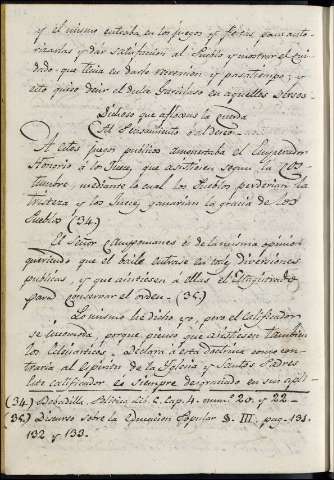 y el mismo entraba en los juegos y fiestas para autori-
zarlas y dar satisfaccion al Pueblo y mostrar el cui-
dado que tenia en darle recreacion y pasatiempo; y
esto quiso decir el dulce Garcilaso en aquellos versos
que afloxas la cuerda
Al Pensamiento o al deseo
A estos juegos publicos amonestaba el Emperador
Honorio á los Jueces, que asistiesen segun la cos-
tumbre, mediante lo cual los Pueblos perderian la
tristeza y los Jueces ganarian la gracia de los
Pueblos (34.)
El Señor Campomanes es de la misma opinion
queriendo que el baile entrase en las diversiones
publicas, y que asistiesen a ellas el Magistrado
para conservar el orden. (35.)
Lo mismo he dicho yo; pero el calificador
se incomoda, porque pienso que asistiesen tambien
los Eclesiasticos, y declara á esta doctrina como con-
traria al Espiritu de la Iglesia y Santos Padres
Este calificador es siempre desgraciado en sus apli-
(34.) Bobadilla, Politica Lib. 2. Cap. 4. num.s 20. y 22-
(35.) Discurso sobre la Educacion Popular §. III. pag. 131.
132 y 133.